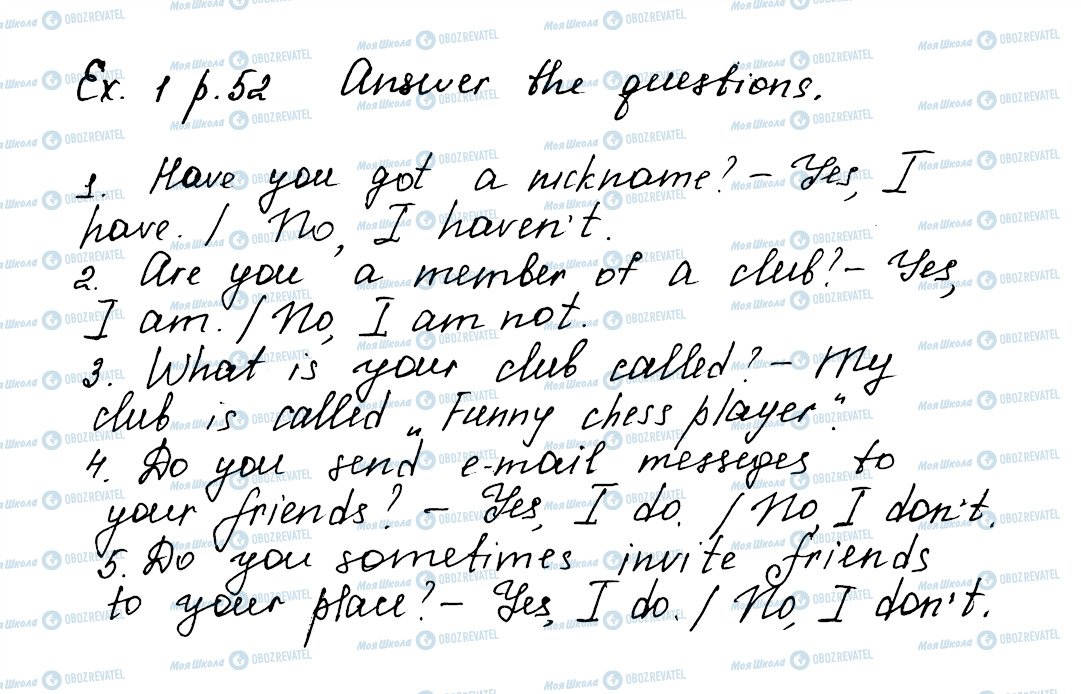 Ex. 1 p.52 Answer the questions.
1. Have you got a nickname? – Yes, I
have. / No, I haven't.
2. Are you a member of a club? – Yes,
I am. / No, I am not.
3. What is your club called? – My
club is called „Funny chess player".
4. Do you send e-mail messeges to
your friends? – Yes, I do. / No, I don't.
5. Do you sometimes invite friends
to your place? – Yes, I do. / No, I don't.
Моя Школа OBOZREVATEL